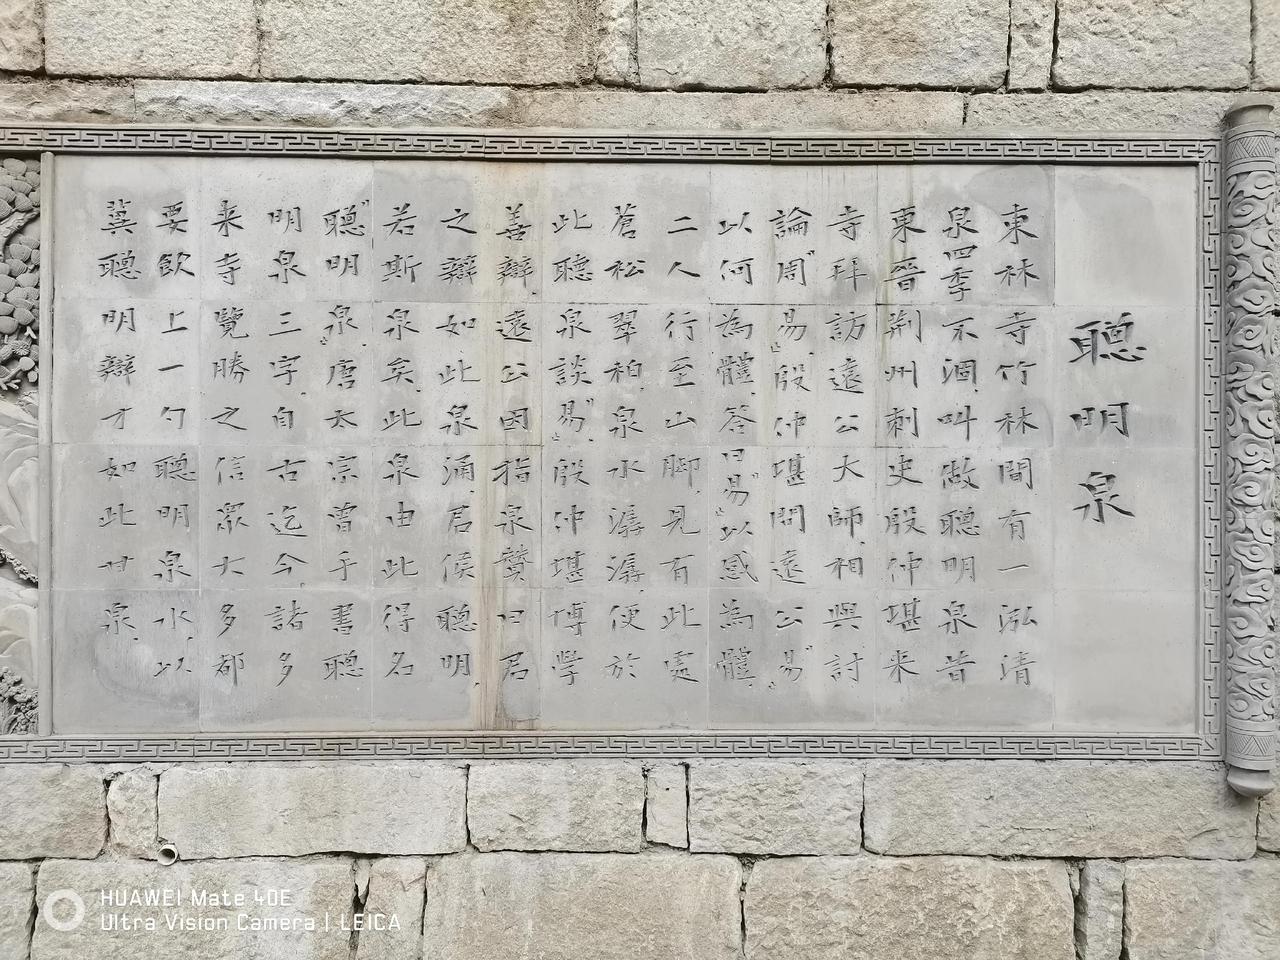 聰明泉
東林寺竹林間有一泓清
泉四季不涸叫做聰明泉昔
東晉荆州刺史殷仲堪来
寺拜訪遠公大師相與討
論《周易》殷仲堪問遠公《易》
以何為體答曰《易》以感為體
二人行至山脚見有此處
蒼松翠柏泉水潺潺便於
此聽泉談《易》殷仲堪博學
善辯遠公因指泉贊曰君
之辯如此泉涌君侯聰明
若斯泉矣此泉由此得名
《聰明泉》唐太宗曾手書聰
明泉三字自古迄今諸多
来寺覽勝之信眾大多都
要飲上一勺聰明泉水以
冀聰明辯才如此甘泉
HUAWEI Mate 40E
Ultra Vision Camera | LEICA